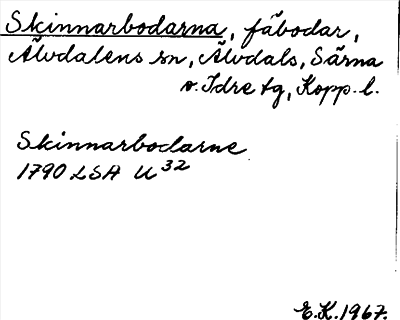 Skinnarbodarna, fäbodar,
Älvdalens sn, Älvdals, Särna
o. Idre tg, Kopp. l.
Skinnarbodarne
1790 LSA U 32
E.K. 1967.